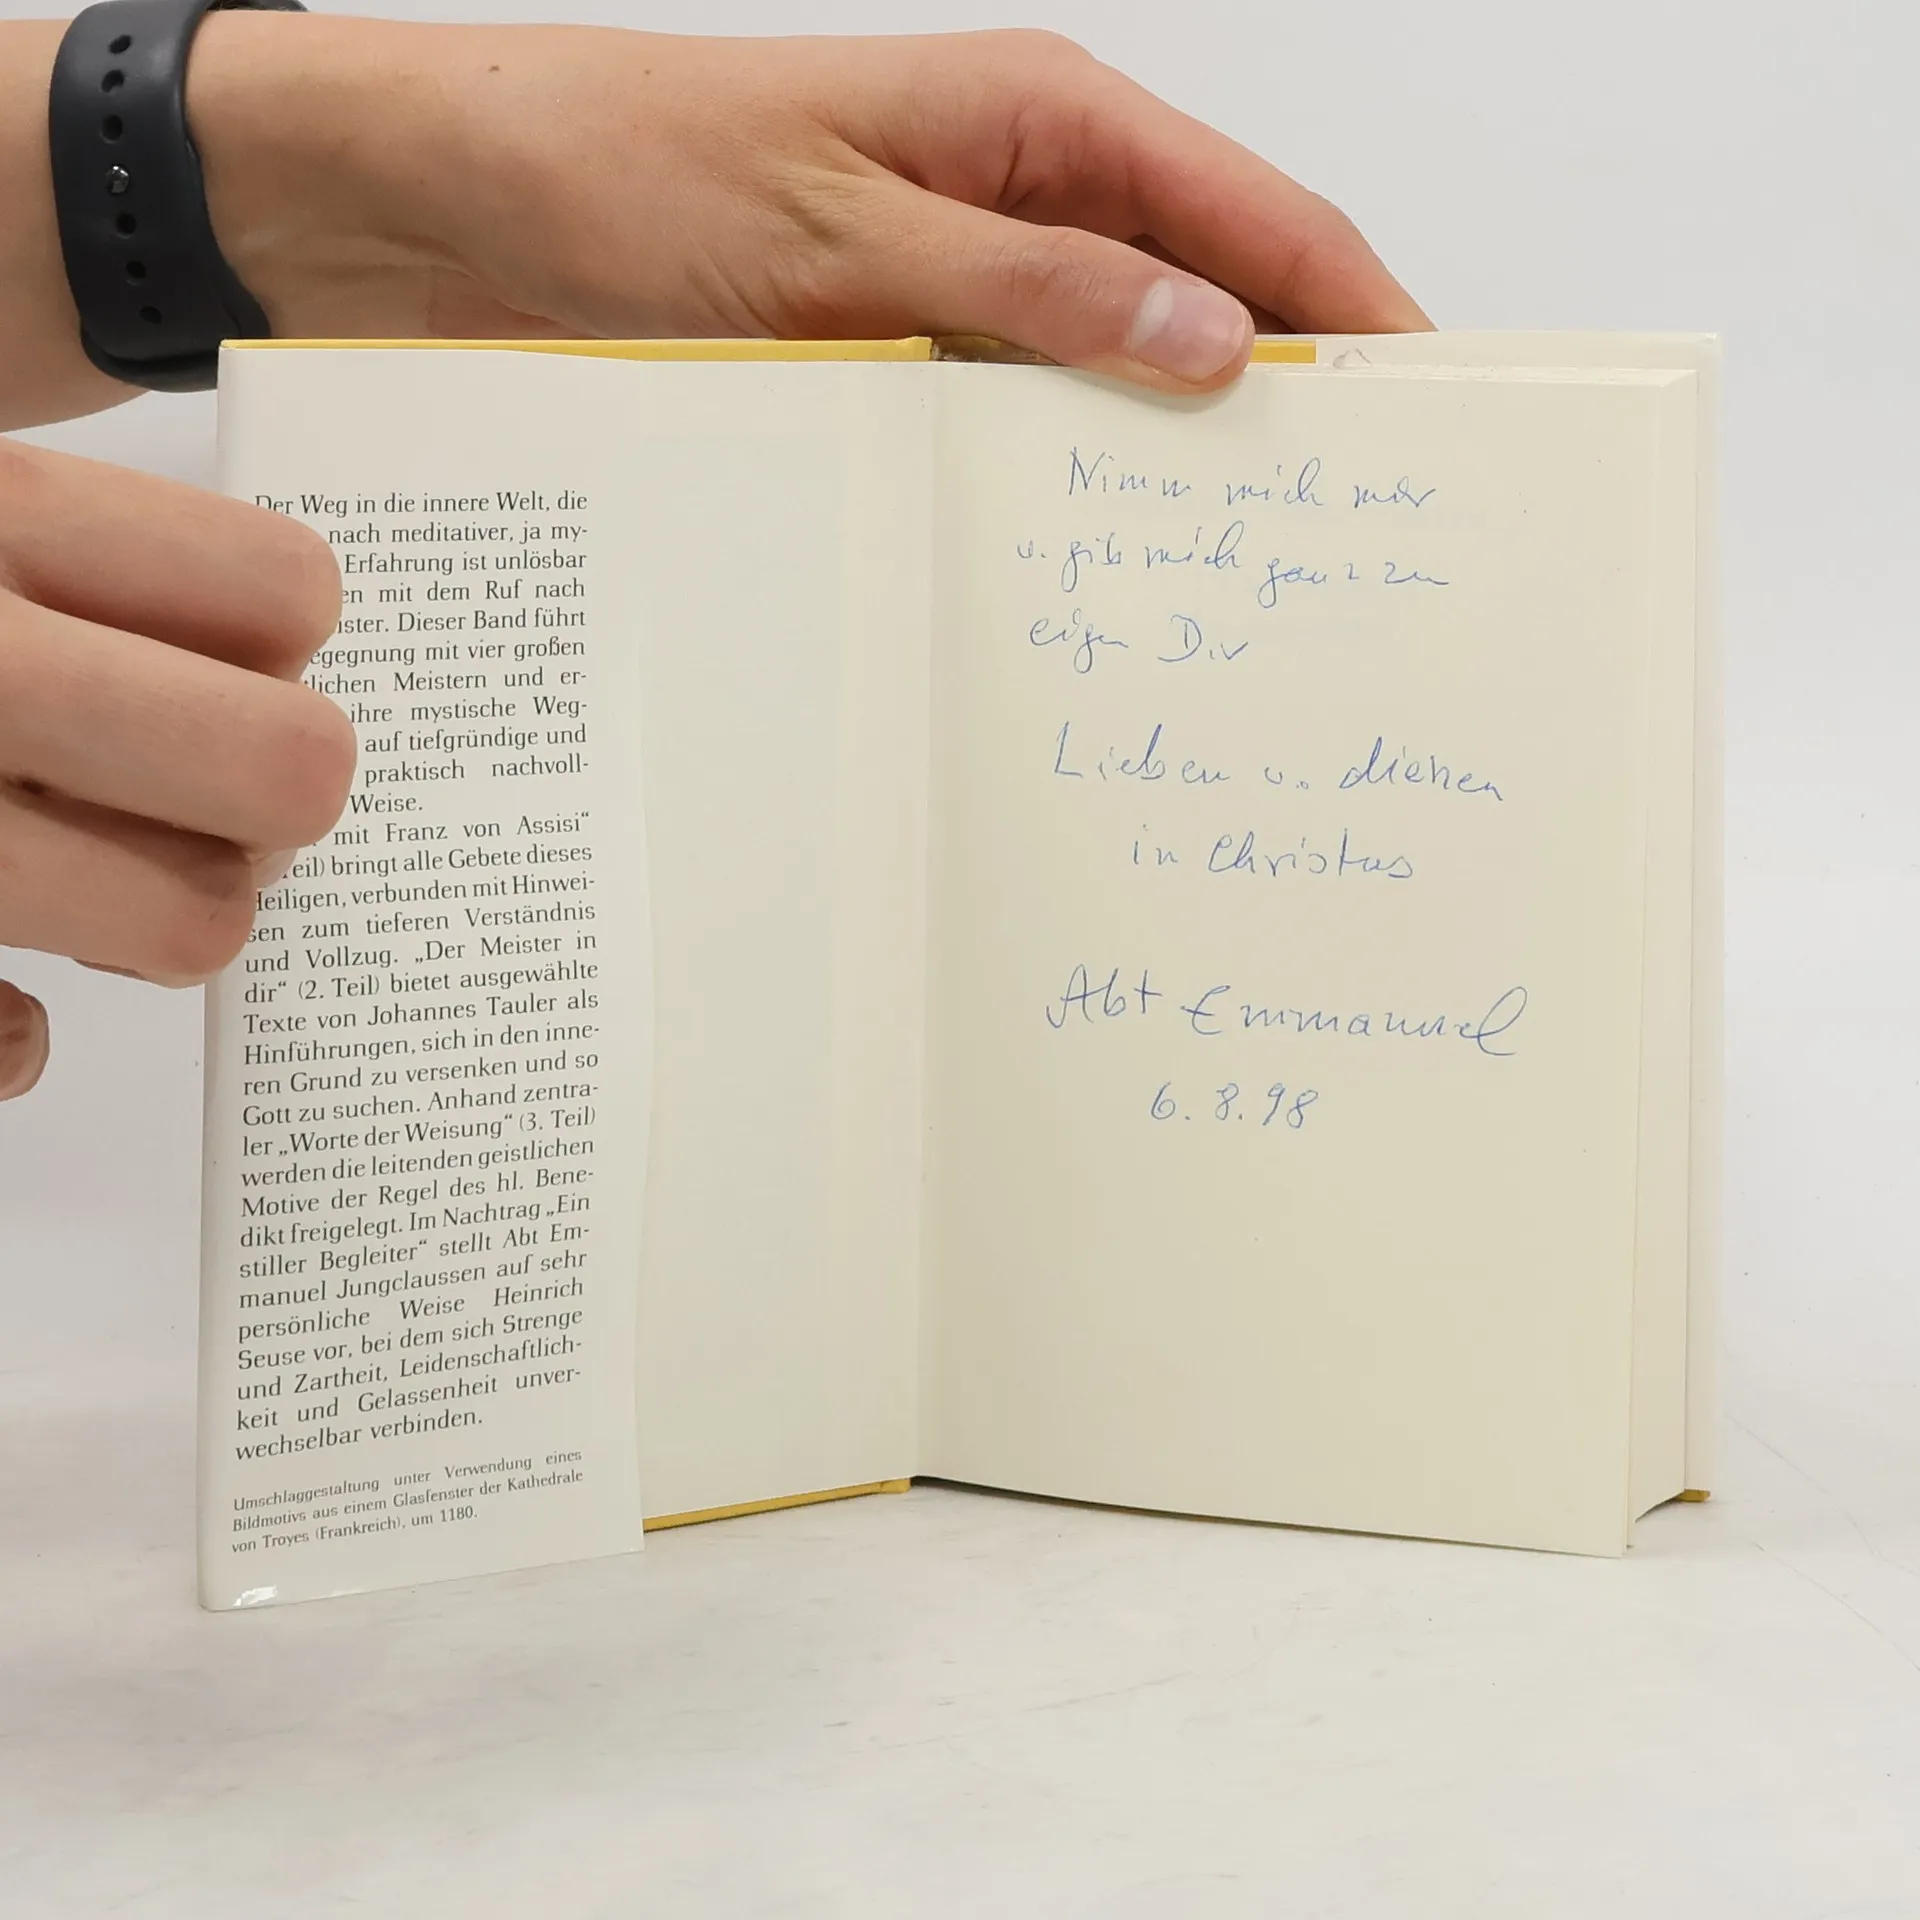 Der Weg in die innere Welt, die
nach meditativer, ja my-
Erfahrung ist unlösbar
en mit dem Ruf nach
ister. Dieser Band führt
egegnung mit vier großen
tlichen Meistern und er-
ihre mystische Weg-
auf tiefgründige und
praktisch nachvoll-
Weise.
mit Franz von Assisi“
eil) bringt alle Gebete dieses
Heiligen, verbunden mit Hinwei-
sen zum tieferen Verständnis
und Vollzug. „Der Meister in
dir“ (2. Teil) bietet ausgewählte
Texte von Johannes Tauler als
Hinführungen, sich in den inne-
ren Grund zu versenken und so
Gott zu suchen. Anhand zentra-
ler „Worte der Weisung“ (3. Teil)
werden die leitenden geistlichen
Motive der Regel des hl. Bene-
dikt freigelegt. Im Nachtrag „Ein
stiller Begleiter“ stellt Abt Em-
manuel Jungclaussen auf sehr
persönliche Weise Heinrich
Seuse vor, bei dem sich Strenge
und Zartheit, Leidenschaftlich-
keit und Gelassenheit unver-
wechselbar verbinden.
Umschlaggestaltung unter Verwendung eines
Bildmotivs aus einem Glasfenster der Kathedrale
von Troyes (Frankreich), um 1180.
Nimm mich mir
u. gib mich ganz zu
eigen Dir
Lieben u. dienen
in Christus
Abt Emmanuel
6. 8. 98